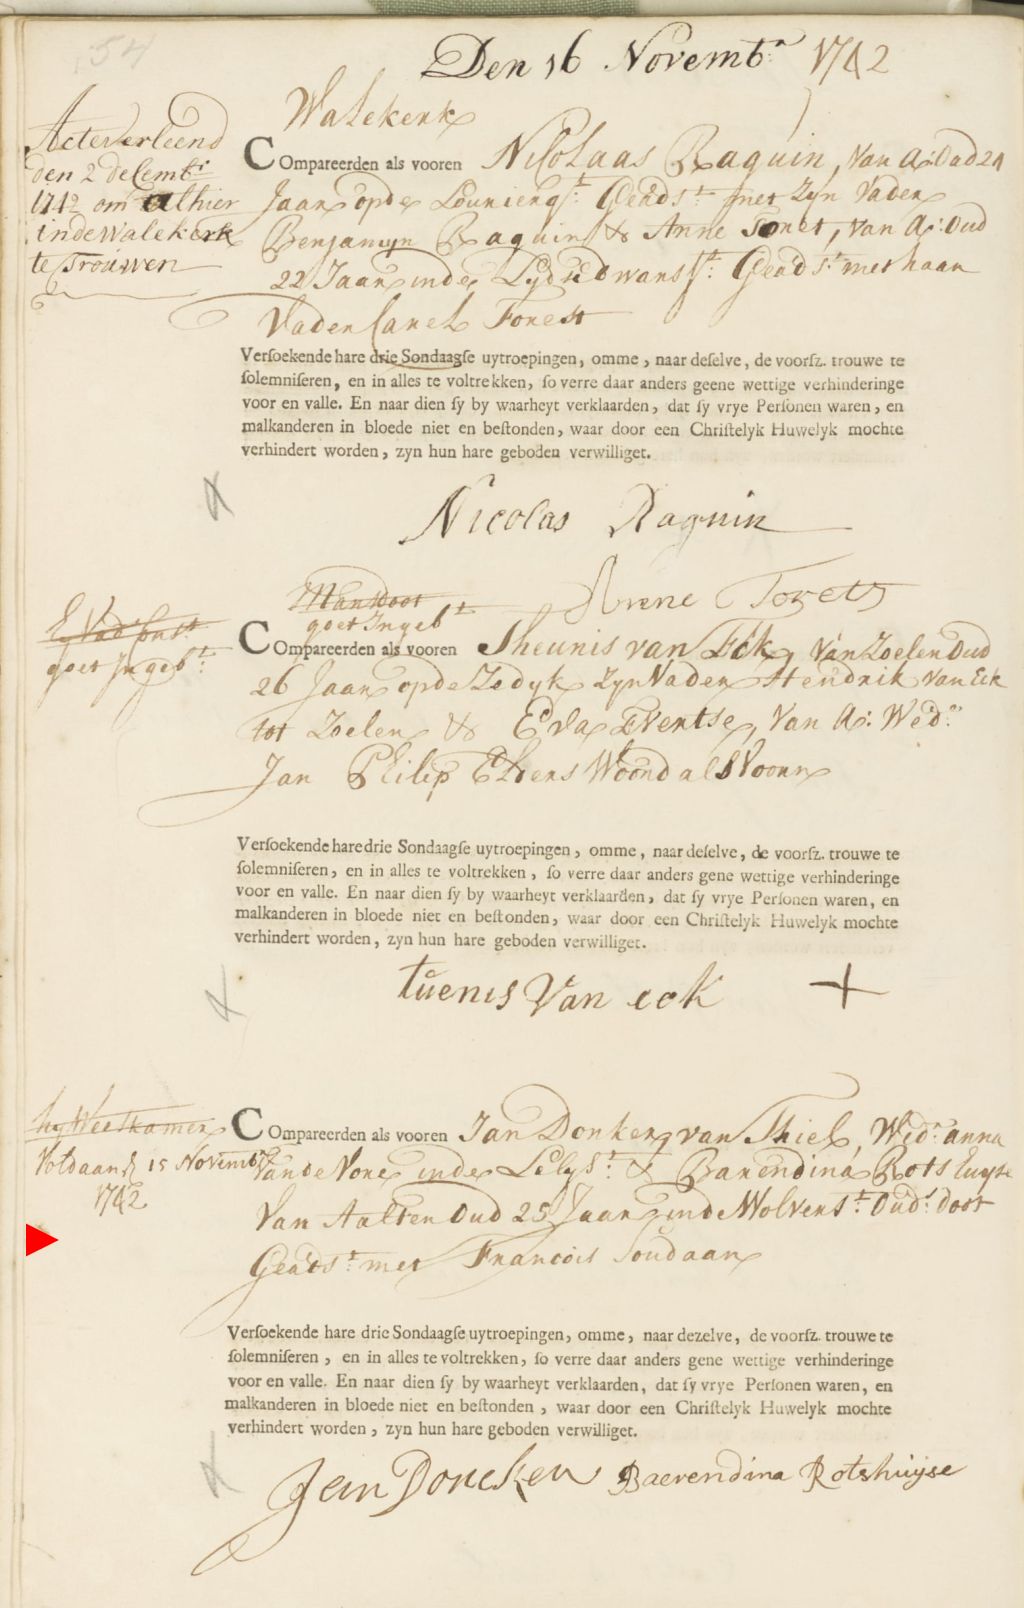 54
Den 16 Novembr. 1742
Walekerk
Acteverleend
den 2 decembr.
1742 om althier
indewalekerk
te Trouwen
Compareerden als vooren Nicolaas Raguin, Van A: Oud 24
Jaar opde Louriergt. Geads.t met Zyn Vader
Benjamyn Raguin & Anne Foret, Van A: Oud
22 Jaar inde Leydsedwarsst: Geads.t met haar
Vader Carel Forest
Versoekende hare drie Sondaagse uytroepingen, omme, naar deselve, de voorsz. trouwe te
solemniseren, en in alles te voltrekken, so verre daar anders geene wettige verhinderinge
voor en valle. En naar dien sy by waarheyt verklaarden, dat sy vrye Personen waren, en
malkanderen in bloede niet en bestonden, waar door een Christelyk Huwelyk mochte
verhindert worden, zyn hun hare geboden verwilliget.
Nicolas Raguin
Anne Forett
Mansdoot
goet Ingebt
goet Ingebt:
Compareerden als vooren Theunis van Eck, Van Zoelen Oud
26 Jaar opde Zedyk Zyn Vader Hendrik Van Eck
tot Zoelen & Eva Evertse, Van A: Wed:
Jan Philip Elders Woond als Voorn
Versoekende hare drie Sondaagse uytroepingen, omme, naar deselve, de voorsz. trouwe te
solemniseren, en in alles te voltrekken, so verre daar anders gene wettige verhinderinge
voor en valle. En naar dien sy by waarheyt verklaarden, dat sy vrye Personen waren, en
malkanderen in bloede niet en bestonden, waar door een Christelyk Huwelyk mochte
verhindert worden, zyn hun hare geboden verwilliget.
tuenis Van eck +
hy Weeskamer
Voldaan d 15 Novembr
1742
Compareerden als vooren Jan Donker, van Thiel, Wedr: anna
Vande Vore inde Lelyst: & Barendina Rotshuyse
Van Aalten Oud 25 Jaar inde Wolvenst: Oud.s doot
Geads.t met Francois Soudaan
Versoekende hare drie Sondaagse uytroepingen, omme, naar dezelve, de voorsz. trouwe te
solemniseren, en in alles te voltrekken, so verre daar anders gene wettige verhinderinge
voor en valle. En naar dien sy by waarheyt verklaarden, dat sy vrye Personen waren, en
malkanderen in bloede niet en bestonden, waar door een Christelyk Huwelyk mochte
verhindert worden, zyn hun hare geboden verwilliget.
Jan Doncker Baerendina Rotshuijse